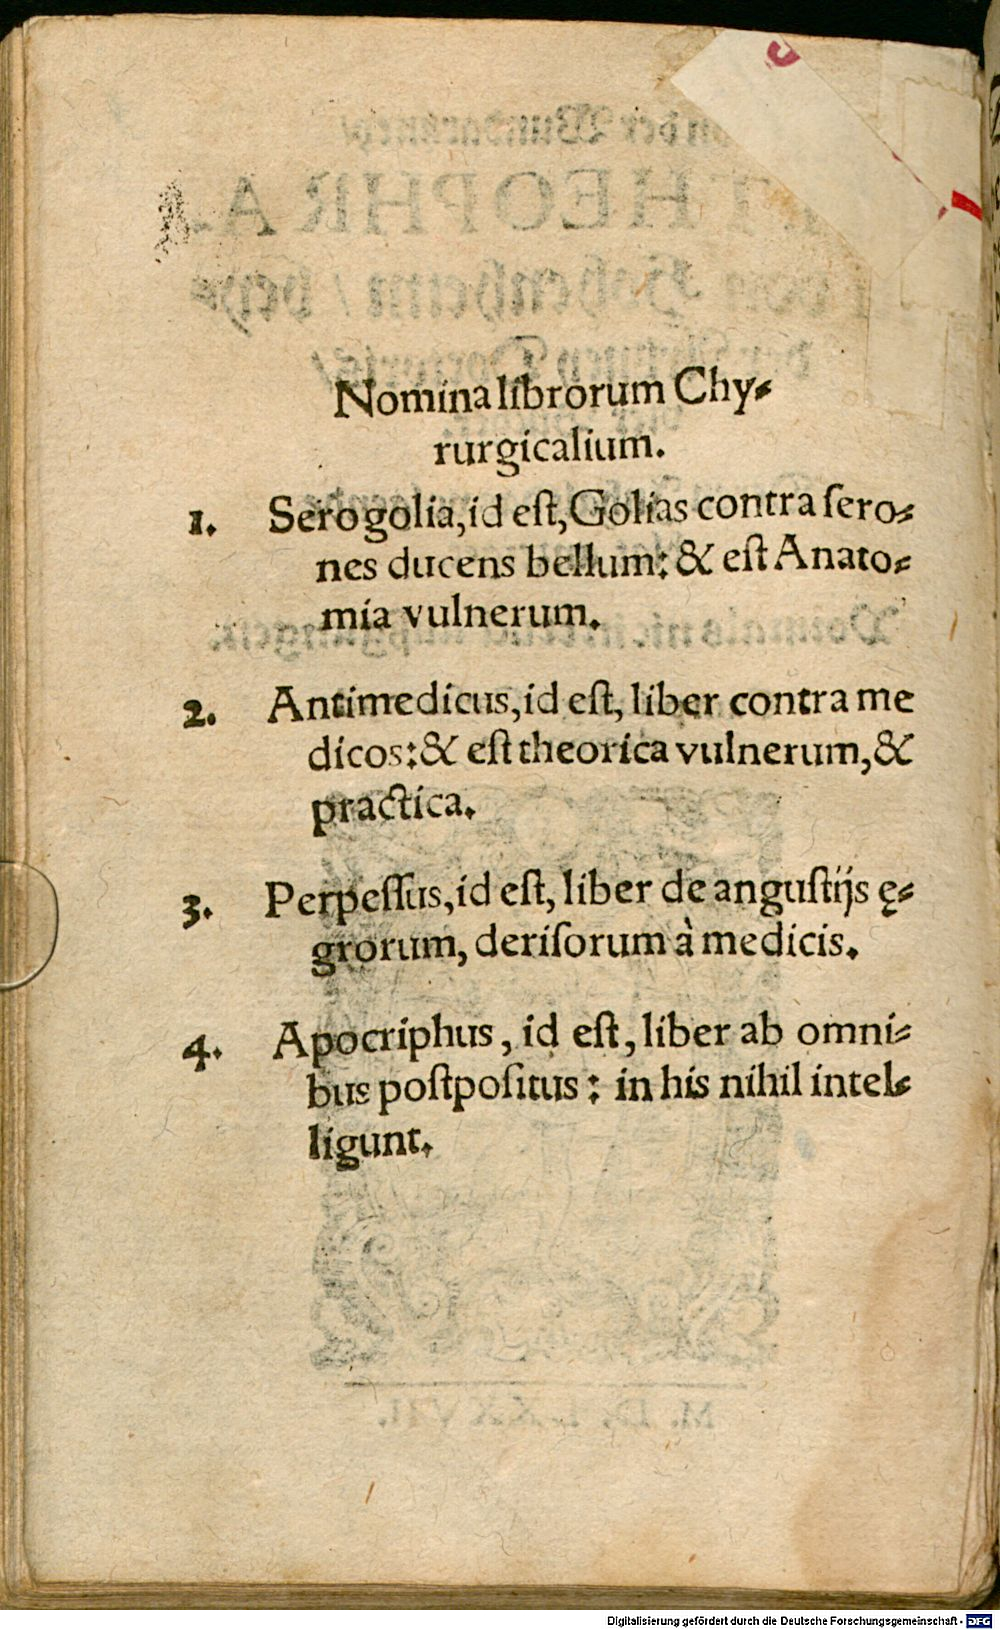 Nomina librorum Chy⸗
rurgicalium.
1. Serogolia, id eſt, Golias contra ſero⸗
nes ducens bellum: & eſt Anato⸗
mia vulnerum.
2. Antimedicus, id eſt, liber contra me
dicos: & eſt theorica vulnerum, &
practica.
3. Perpeſſus, id eſt, liber de anguſtijs ę⸗
grorum, deriſorum à medicis.
4. Apocriphus, id eſt, liber ab omni⸗
bus poſtpoſitus: in his nihil intel⸗
ligunt.
Digitalisierung gefördert durch die Deutsche Forschungsgemeinschaft - DFG